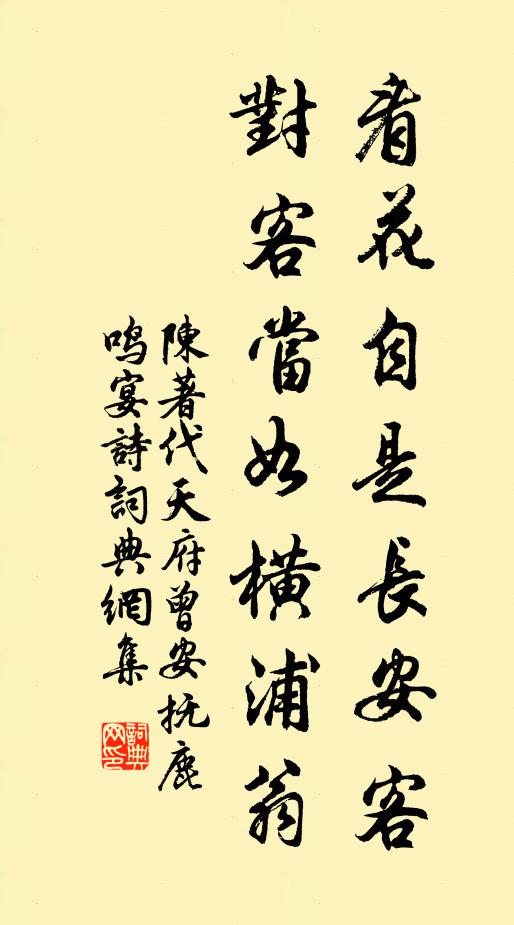 看花自是長安客
對客當如橫浦翁
陳著代天府曾安抚鹿
鸣宴詩詞典網集
詞典网印